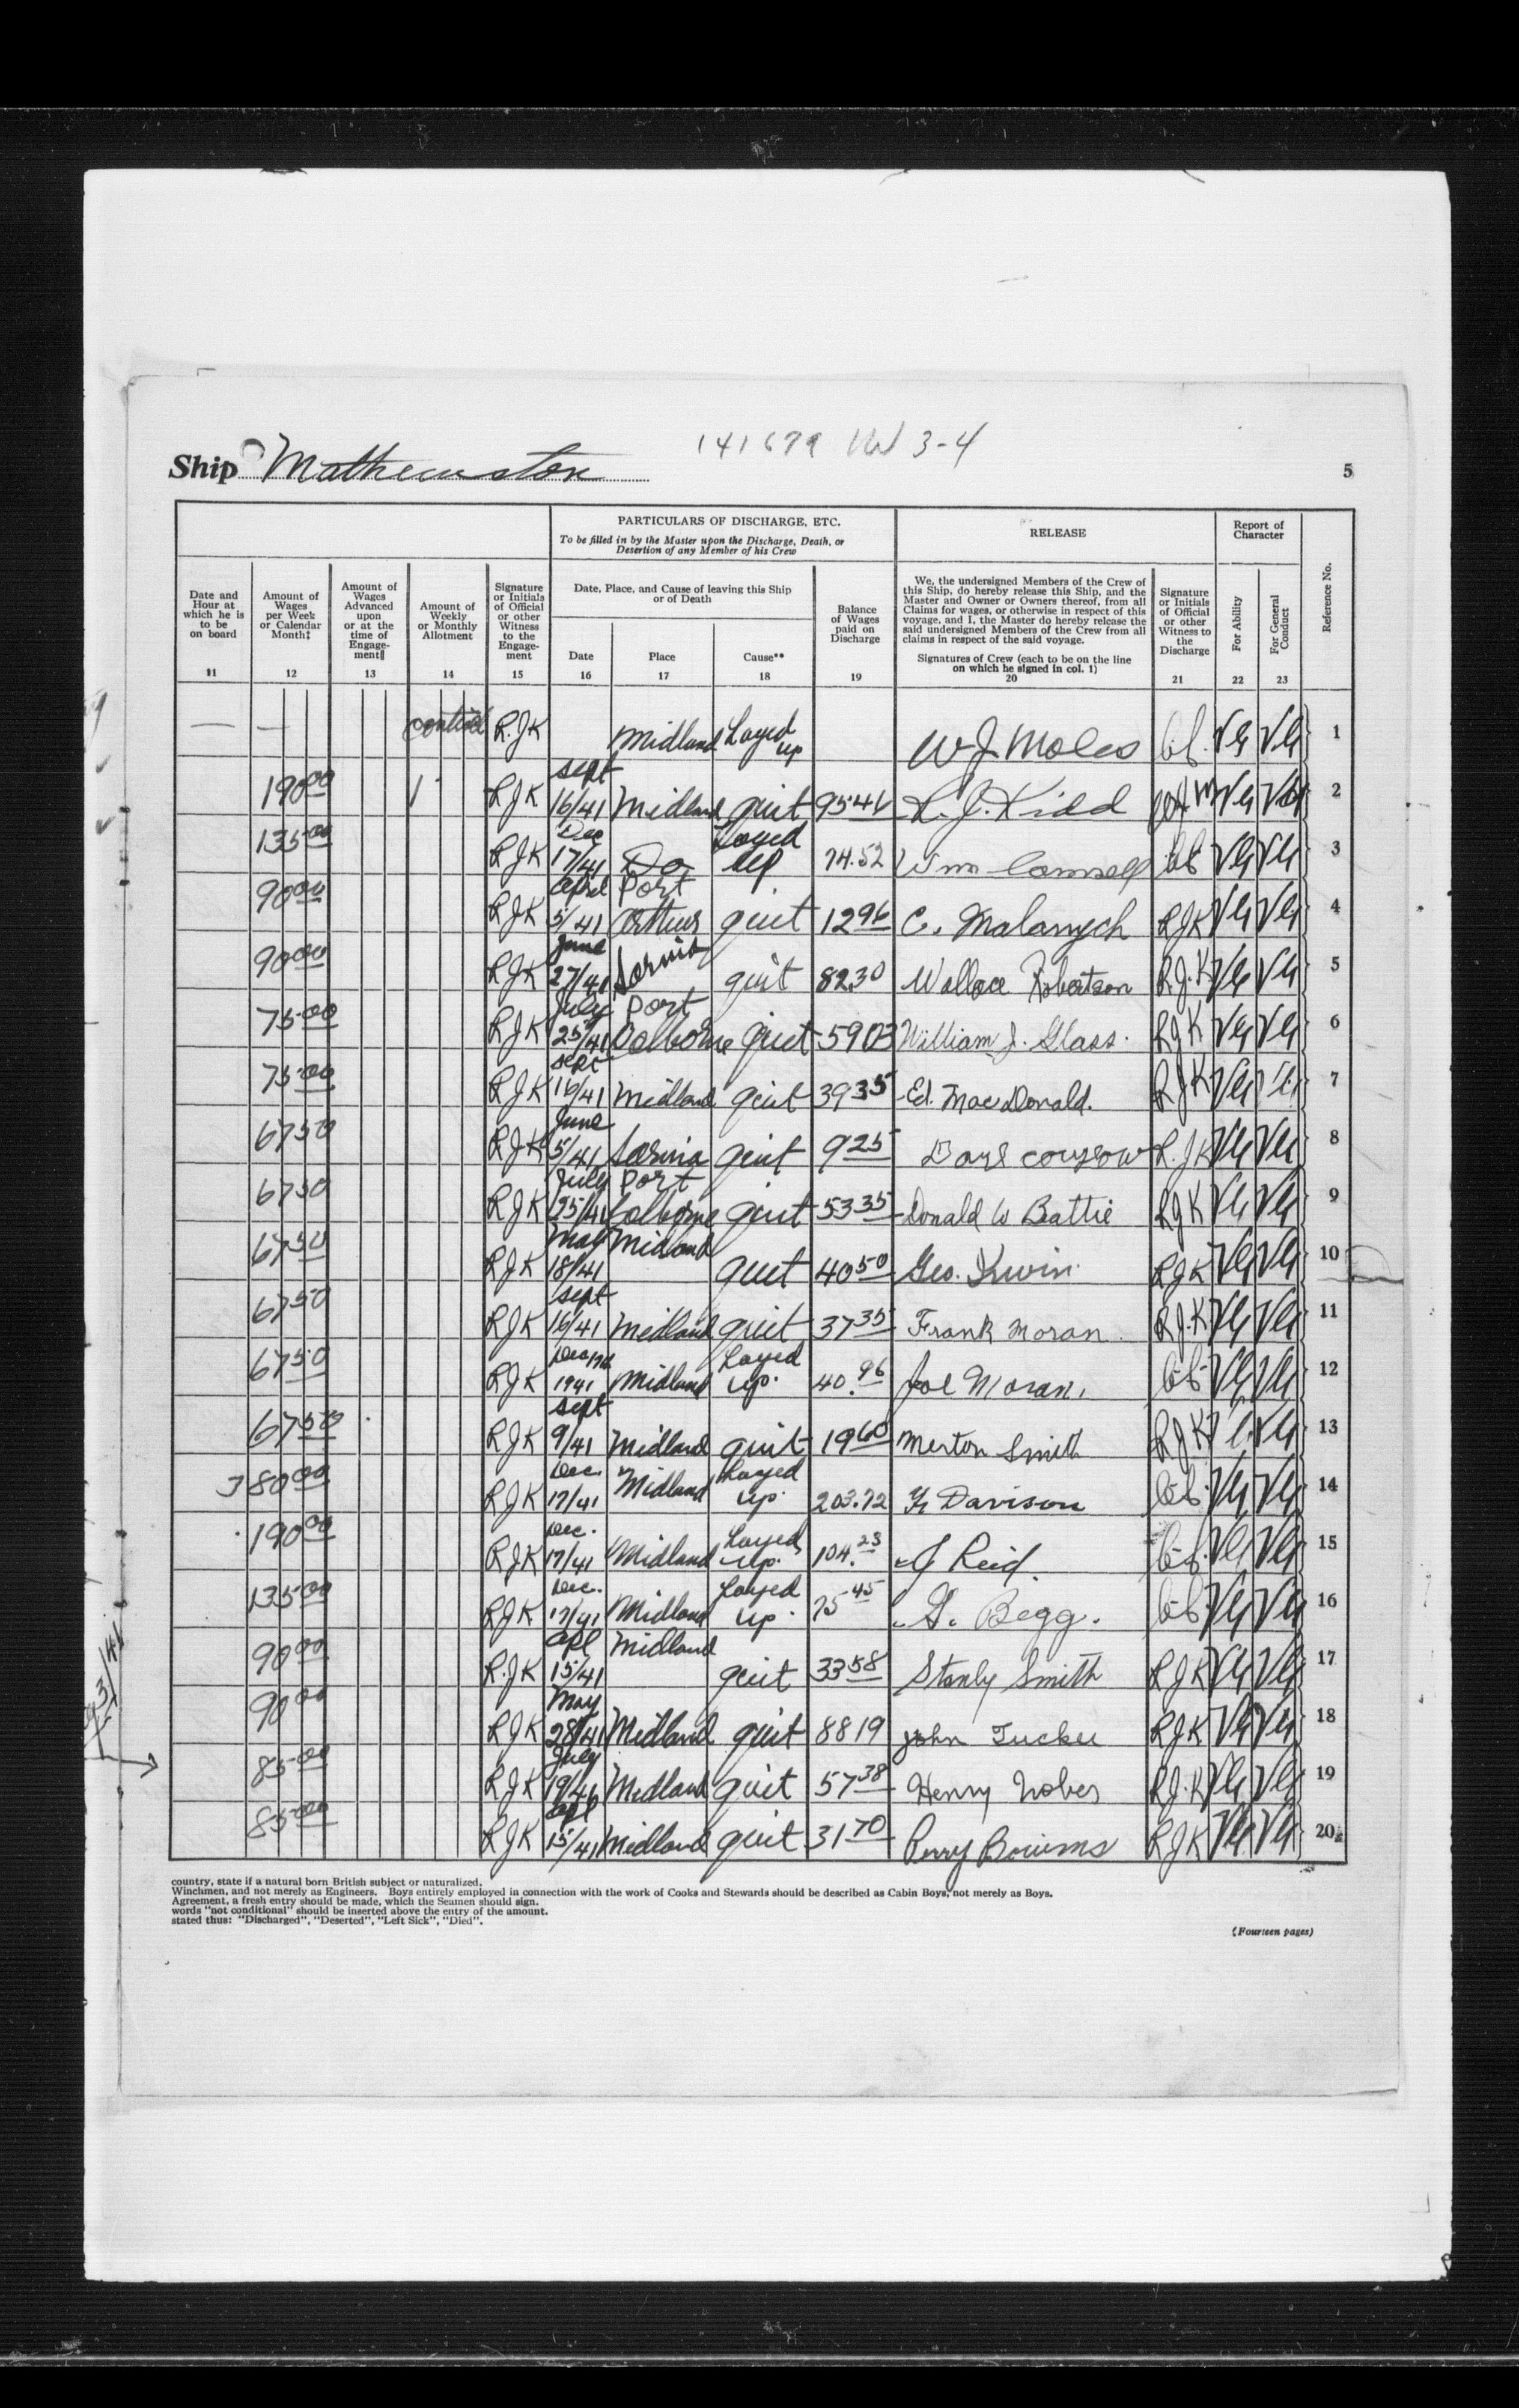 141679 VW 3-4
Ship Mathewston
5
PARTICULARS OF DISCHARGE, ETC.
To be filled in by the Master upon the Discharge, Death, or
Desertion of any Member of his Crew
RELEASE
Report of
Character
Reference No.
Date and
Hour at
which he is
to be
on board
Amount of
Wages
per Week
or Calendar
Month‡
Amount of
Wages
Advanced
upon
or at the
time of
Engage-
ment‖
Amount of
Weekly
or Monthly
Allotment
Signature
or Initials
of Official
or other
Witness
to the
Engage-
ment
Date, Place, and Cause of leaving this Ship
or of Death
Date Place Cause**
Balance
of Wages
paid on
Discharge
We, the undersigned Members of the Crew of
this Ship, do hereby release this Ship, and the
Master and Owner or Owners thereof, from all
Claims for wages, or otherwise in respect of this
voyage, and I, the Master do hereby release the
said undersigned Members of the Crew from all
claims in respect of the said voyage.
Signatures of Crew (each to be on the line
on which he signed in col. 1)
Signature
or Initials
of Official
or other
Witness to
the
Discharge
For Ability
For General
Conduct
11 12 13 14 15 16 17 18 19 20 21 22 23
— — R.J.K Midland Layed up W J Moles VG VG 1
190.00 R J K Sept 16/41 Midland quit L. J. Kidd VG VG 2
135.00 R J K Dec 17/41 Do Layed up 74.52 VG VG 3
90.00 R J K April 5/41 Port Arthur quit 12.96 C. Malanych R J K VG VG 4
90.00 R J K June 27/41 Sarnia quit 82.30 Wallace Robertson R.J.K VG VG 5
75.00 R J K July 25/41 Port Colborne quit 59.03 William J. Glass. R J K VG VG 6
75.00 R J K Sept 16/41 Midland quit 39.35 Ed. MacDonald. R J K VG 7
67.50 R J K June 5/41 Sarnia quit 9.25 R.J.K VG VG 8
67.50 R J K July 25/41 Port Colborne quit 53.35 Donald W Beattie R J K VG VG 9
67.50 R J K May 18/41 Midland quit 40.50 Geo. Irwin R J K VG VG 10
67.50 R J K Sept 16/41 Midland quit 37.35 Frank Moran R.J.K VG VG 11
67.50 R J K Dec 17th 1941 Midland Layed up. 40.96 Joe Moran. VG VG 12
67.50 R J K Sept 9/41 Midland quit 19.60 Merton Smith R J K VG 13
380.00 R J K Dec. 17/41 Midland Layed up. 203.72 Davison VG VG 14
190.00 R J K Dec. 17/41 Midland Layed up. 104.23 Reid. VG VG 15
135.00 R J K Dec. 17/41 Midland Layed up. 75.45 G. Begg. VG VG 16
90.00 R.J.K Apl 15/41 Midland quit 33.58 Stanly Smith R J K VG VG 17
90.00 R J K May 28/41 Midland quit 88.19 John Tucker R J K VG VG 18
85.00 R J K July 19/41 Midland quit 57.38 Henry R.J.K VG VG 19
85.00 R J K Apl 15/41 Midland quit 31.70 Perry R J K VG VG 20
country, state if a natural born British subject or naturalized.
Winchmen, and not merely as Engineers. Boys entirely employed in connection with the work of Cooks and Stewards should be described as Cabin Boys, not merely as Boys.
Agreement, a fresh entry should be made, which the Seamen should sign.
words "not conditional" should be inserted above the entry of the amount.
stated thus: "Discharged", "Deserted", "Left Sick", "Died".
(Fourteen pages)